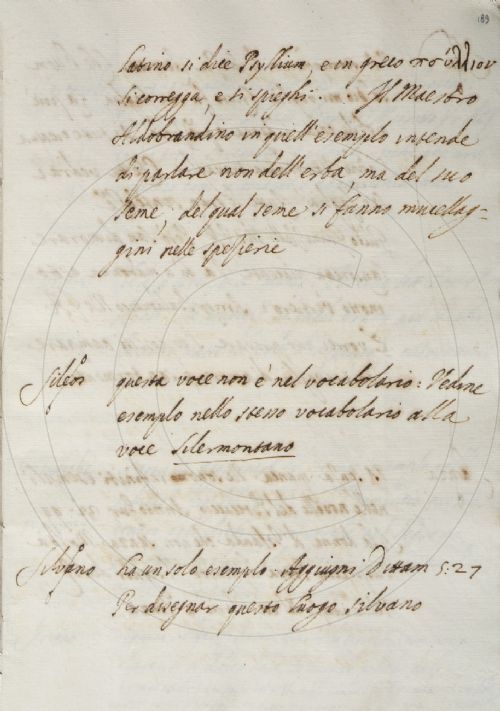 189
latino si dice Psyllium, e in greco
si corregga, e si spieghi. Il Maestro
Aldobrandino in quell'esempio intende
di parlare non dell'erba, ma del suo
seme, del qual seme si fanno mucellag-
gini nelle spezierie
questa voce non è nel vocabolario: Vedine
esempio nello stesso vocabolario alla
voce Silermontano
Silvano ha un solo esempio: Aggiugni Dittam 5:27
Per disegnar questo luogo silvano